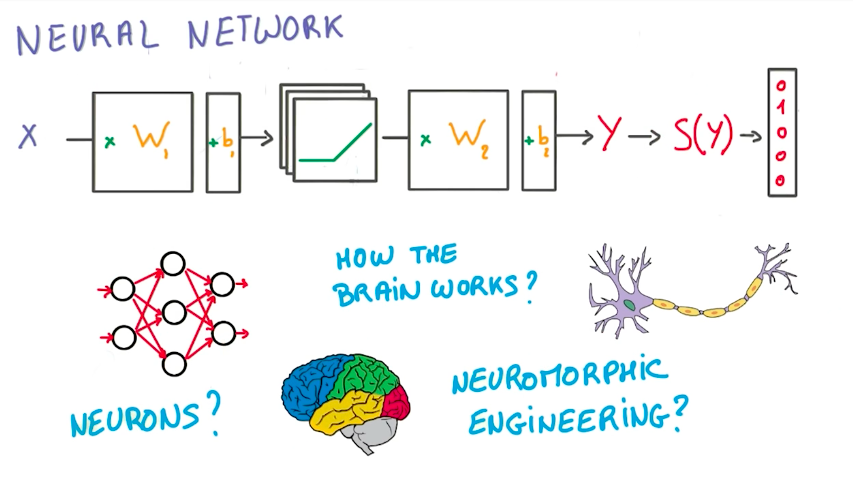 NEURAL NETWORK
X × W₁ + b₁ × W₂ + b₂ Y S(Y) 0
1
0
0
0
HOW THE
BRAIN WORKS?
NEURONS?
NEUROMORPHIC
ENGINEERING?